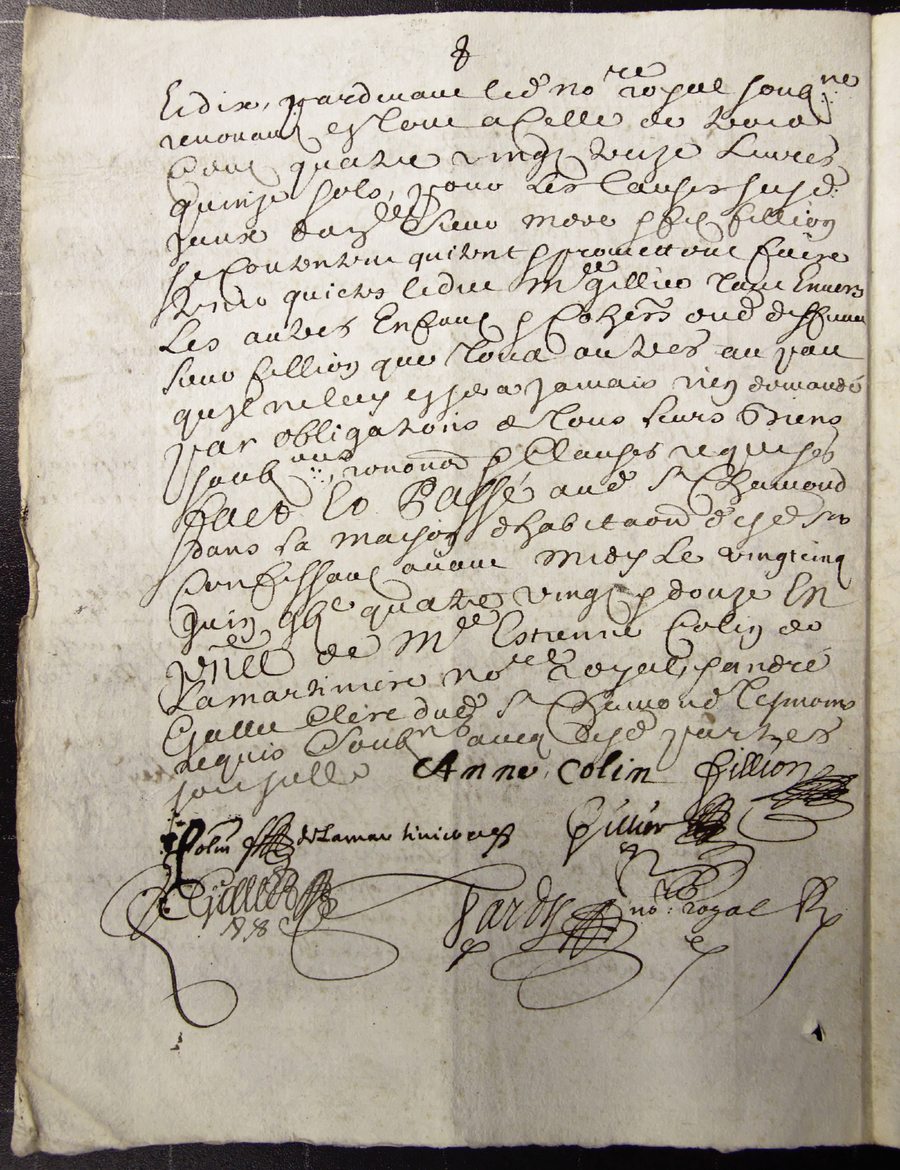 8
Et dix, pardevant led no.re royal soub.né
revenant et tout a Celle de trois
Cens quatre vingt treize Livres
quinze sols, pour les Causes susd.
Sieur mere & fils fillion
se Contentent quitent & promettent faire
tenir quicte led Mre gillier Tant Envers
Les autres Enfans & Cohers dud deffunct
Sieur fillion que Tous autres au pan
qu'il ne luy en sera jamais rien demandé
par obligations de Tous leurs Biens
soub.ons renonc & Clauses requises
faict Et Passé aud St Chamond
dans la maison d'habitaon desd Srs
Confessans avant midy Le vingtcinq
Juin gbjc quatre vingt & douze En
pnce de Mre Estienne Colin de
Lamartiniere no.re Royal, & andré
Clerc dud St Chamond Tesmoins
requis Soub.nes avec lesd parties
Anne Colin fillion
Colin de Lamartiniere
Gillier
Tardy no.re royal